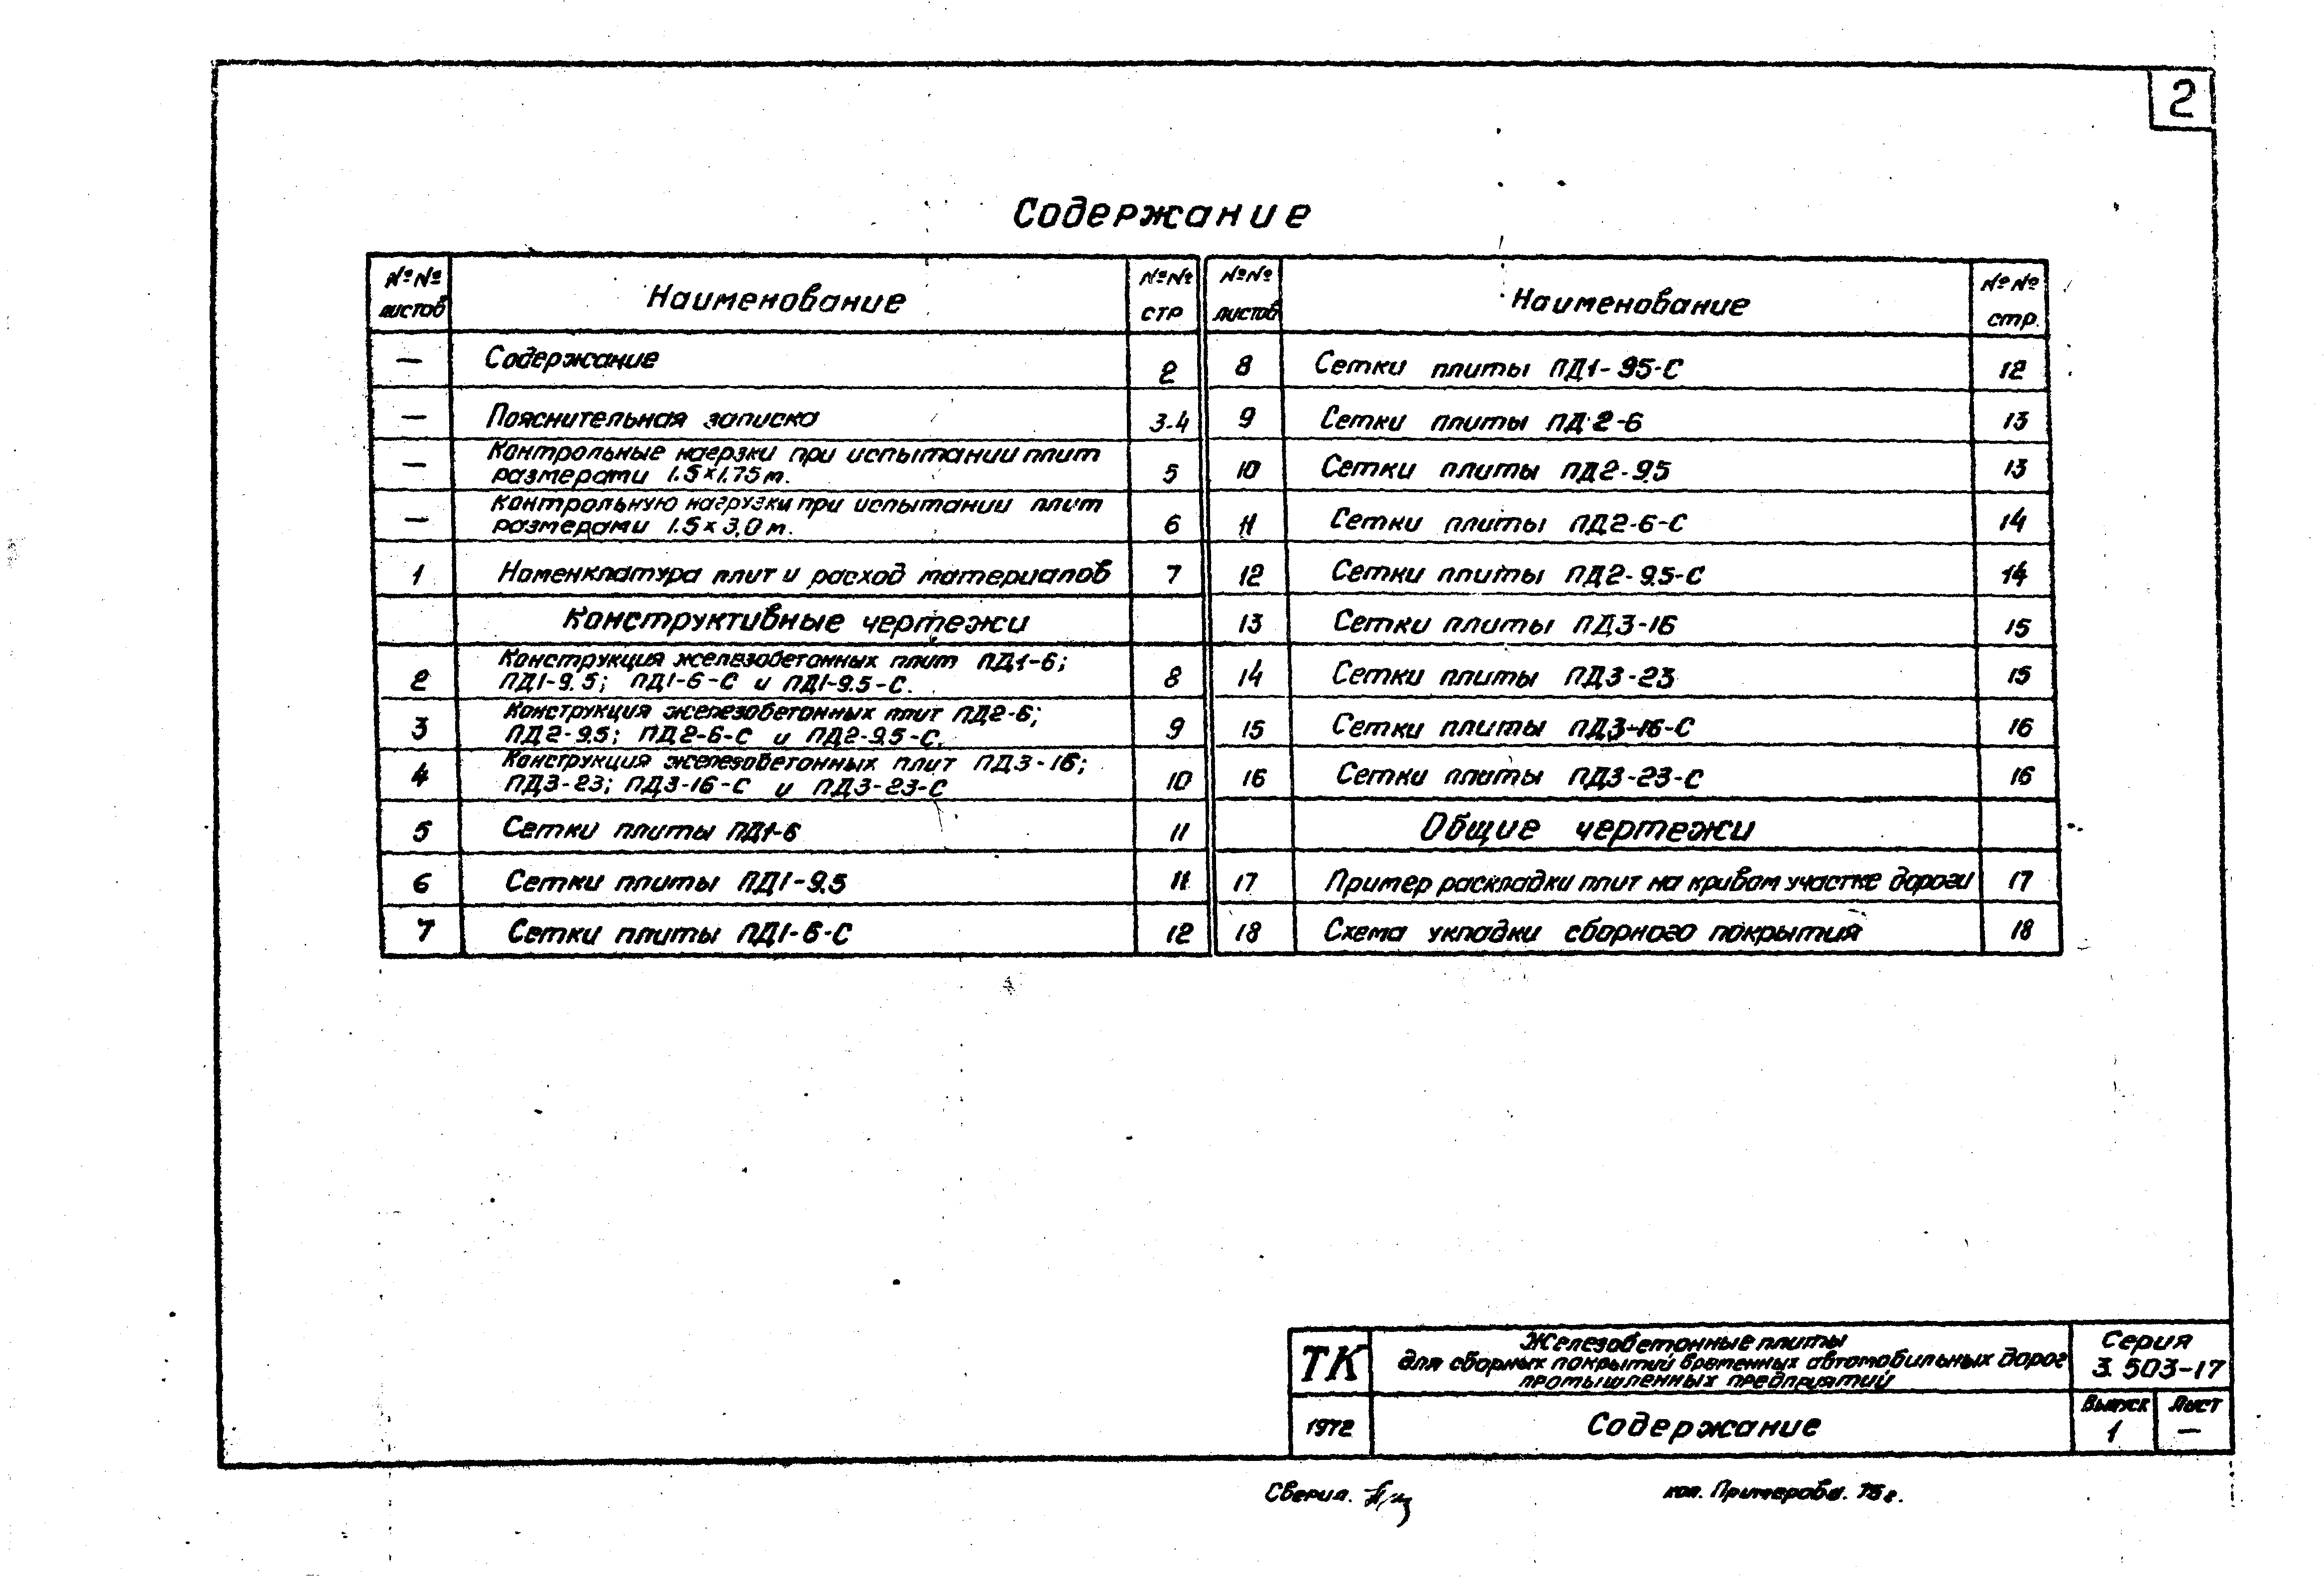 2
Содержание
№№ листов Наименование №№ стр
— Содержание 2
— Пояснительная записка 3-4
— Контрольные нагрзки при испытании плит
размерами 1.5×1.75м. 5
— Контрольную нагрузки при испытании плит
размерами 1.5×3,0м. 6
1 Номенклатура плит и расход материалов 7
Конструктивные чертежи
2 Конструкция железобетонных плит ПД1-6;
ПД1-9.5; ПД1-6-С и ПД1-9.5-С. 8
3 Конструкция железобетонных плит ПД2-6;
ПД2-9.5; ПД2-6-С и ПД2-9.5-С. 9
4 Конструкция железобетонных плит ПД3-16;
ПД3-23; ПД3-16-С и ПД3-23-С 10
5 Сетки плиты ПД1-6 11
6 Сетки плиты ПД1-9.5 11
7 Сетки плиты ПД1-6-С 12
№№ листов Наименование №№ стр.
8 Сетки плиты ПД1-95-С 12
9 Сетки плиты ПД 2-6 13
10 Сетки плиты ПД2-9.5 13
11 Сетки плиты ПД2-6-С 14
12 Сетки плиты ПД2-9.5-С 14
13 Сетки плиты ПД3-16 15
14 Сетки плиты ПД3-23 15
15 Сетки плиты ПД3-16-С 16
16 Сетки плиты ПД3-23-С 16
Общие чертежи
17 Пример раскладки плит на кривом участке дороги 17
18 Схема укладки сборного покрытия 18
ТК
Железобетонные плиты
для сборных покрытий временных автомобильных дорог
промышленных предприятий
Серия
3.503-17
1972
Содержание
Выпуск
1
Лист
—
Сверил.
коп. Примерова. 75г.